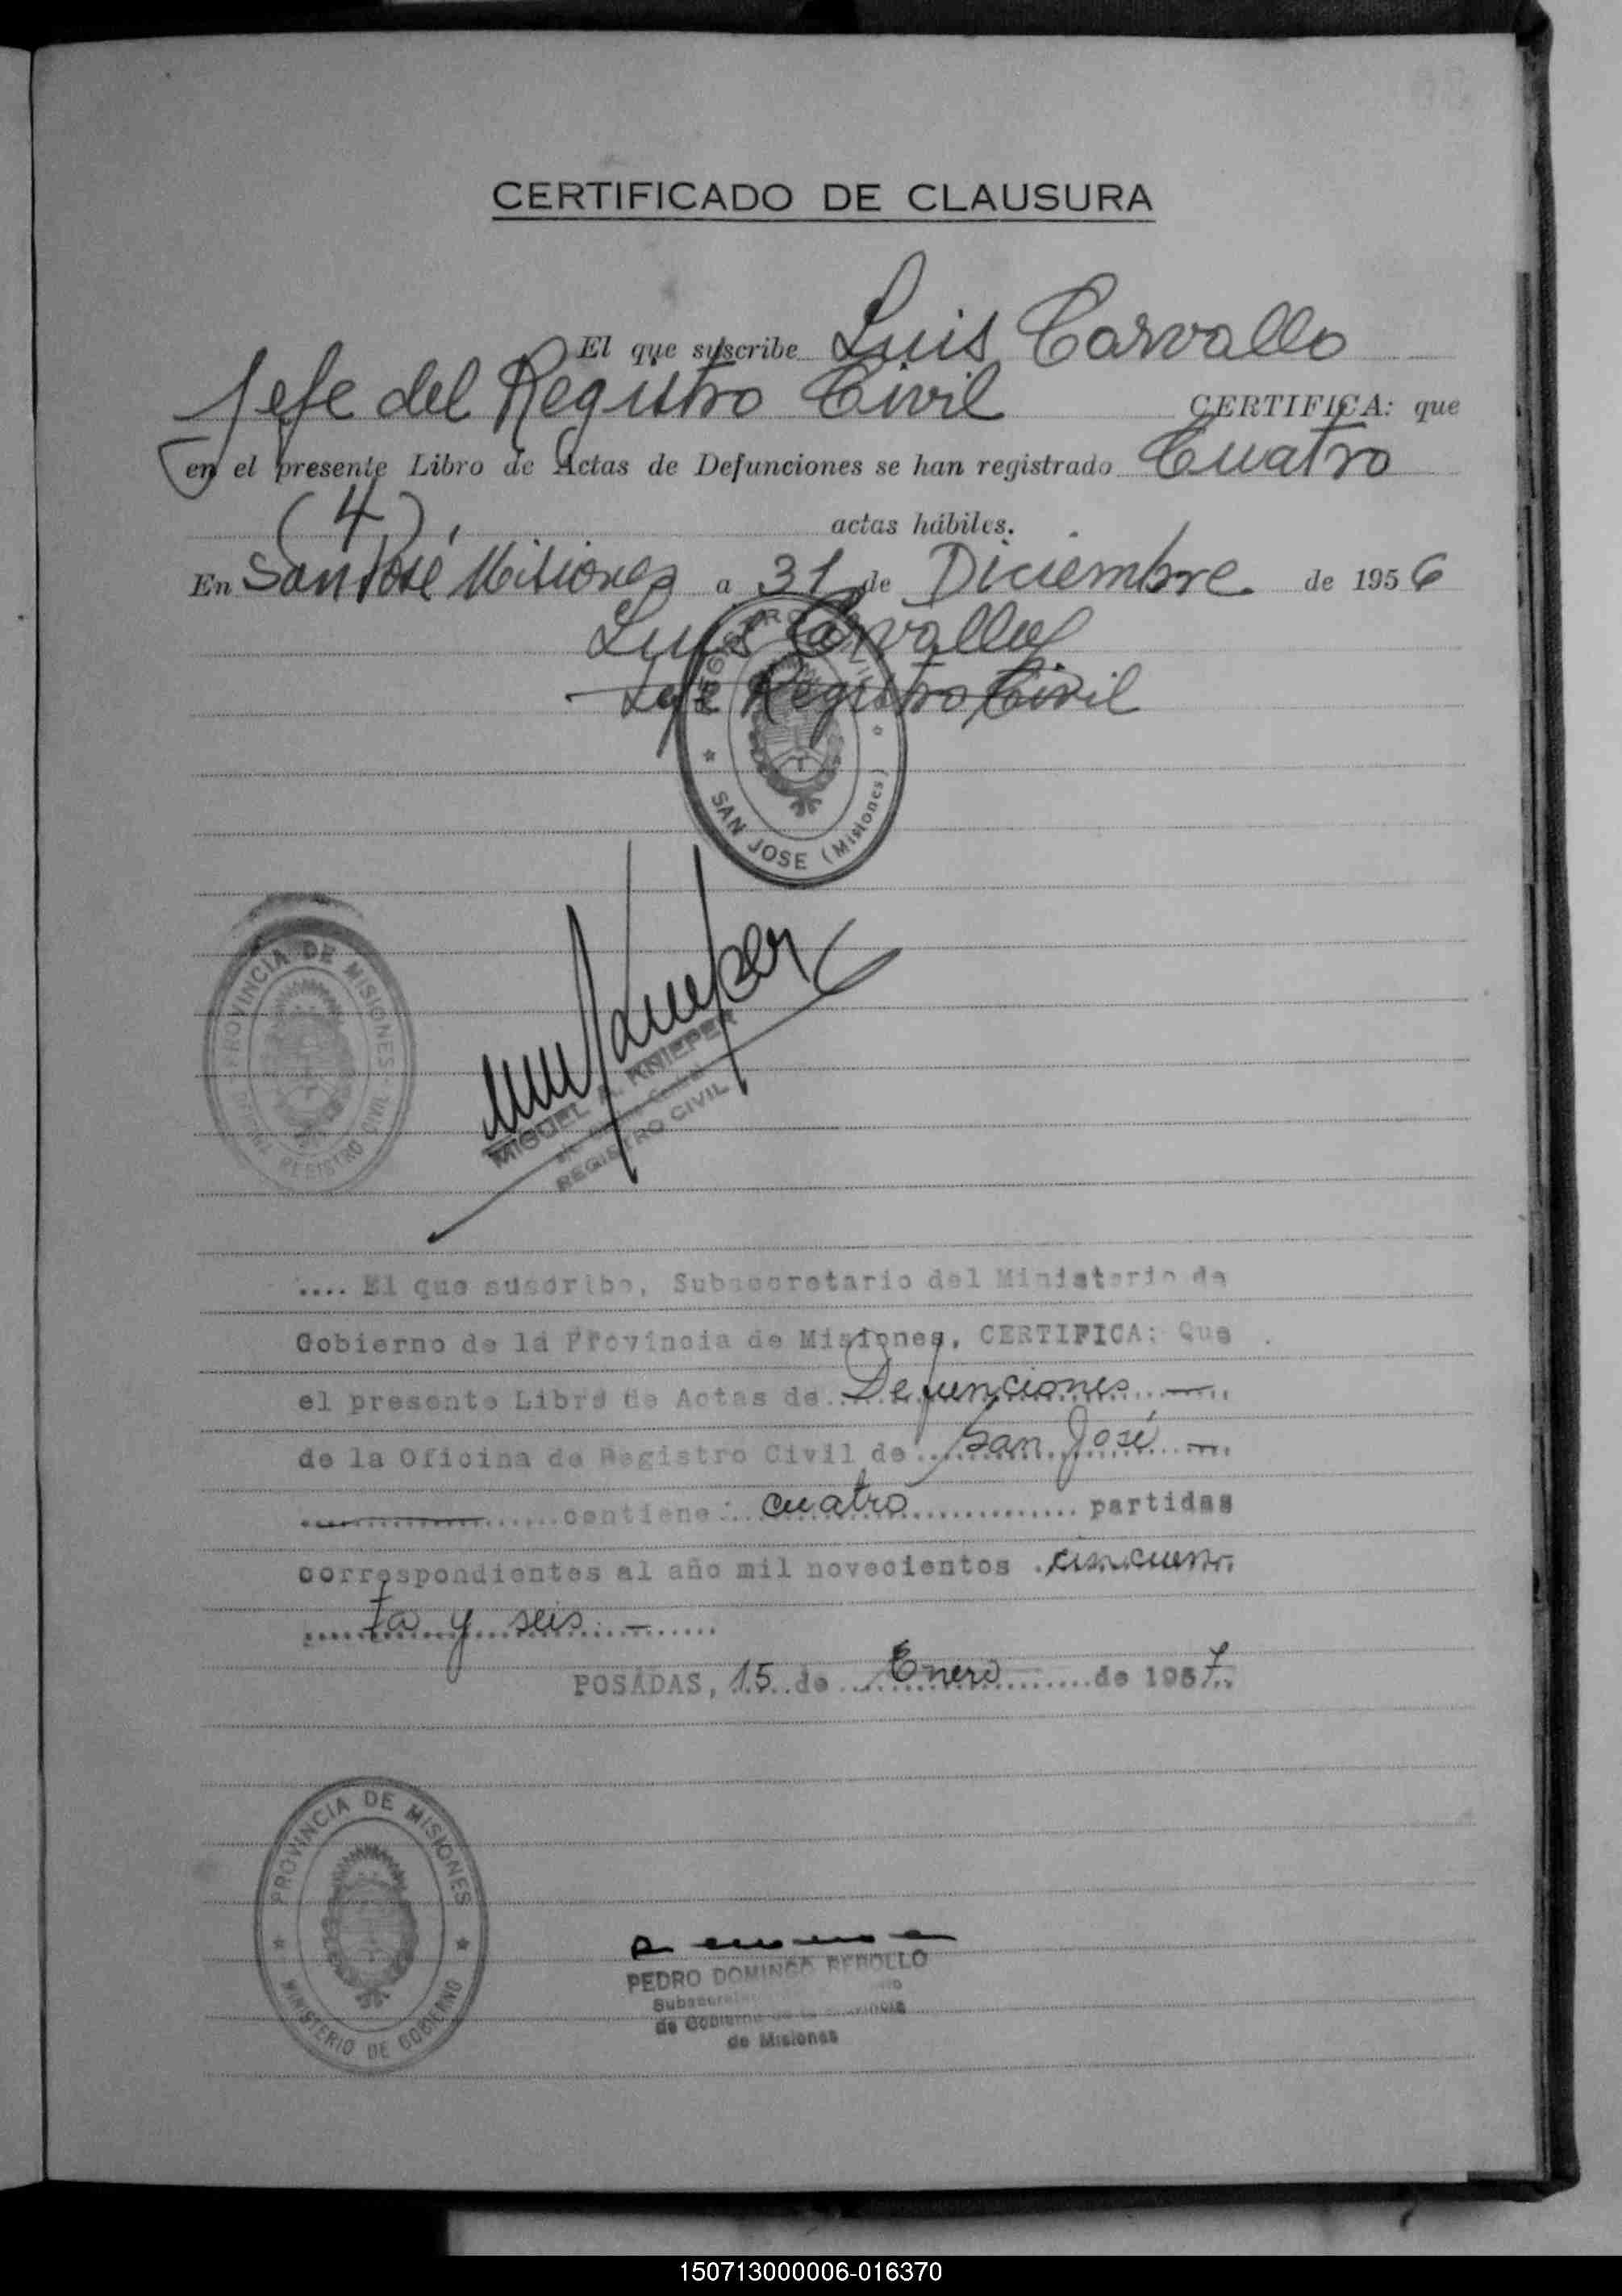 CERTIFICADO DE CLAUSURA
El que suscribe Luis Carvallo
Jefe del Registro Civil CERTIFICA: que
en el presente Libro de Actas de Defunciones se han registrado Cuatro
(4) actas hábiles.
En San José Misiones a 31 de Diciembre de 1956
Luis Carvallo
Jefe Registro Civil
REGISTRO CIVIL
SAN JOSE (Misiones)
PROVINCIA DE MISIONES
REGISTRO CIVIL
MIGUEL A. KNIEPER
REGISTRO CIVIL
.... El que suscribe, Subsecretario del Ministerio de
Gobierno de la Provincia de Misiones, CERTIFICA: Que
el presente Libro de Actas de Defunciones
de la Oficina de Registro Civil de San José
contiene: cuatro partidas
correspondientes al año mil novecientos cincuen
ta y seis
POSADAS, 15 de Enero de 1957
PROVINCIA DE MISIONES
MINISTERIO DE GOBIERNO
PEDRO DOMINGO REBOLLO
de Gobierno de la Provincia
de Misiones
150713000006-016370